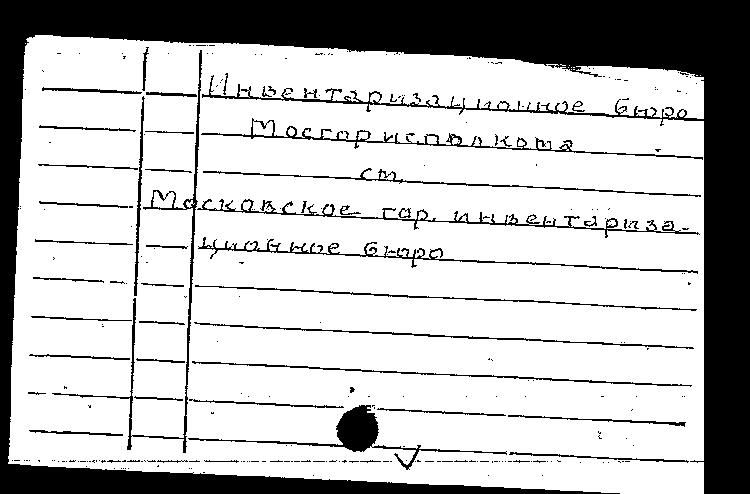 Инвентаризационное бюро
Мосгорисполкома
см.
Московское гор. инвентариза-
ционное бюро